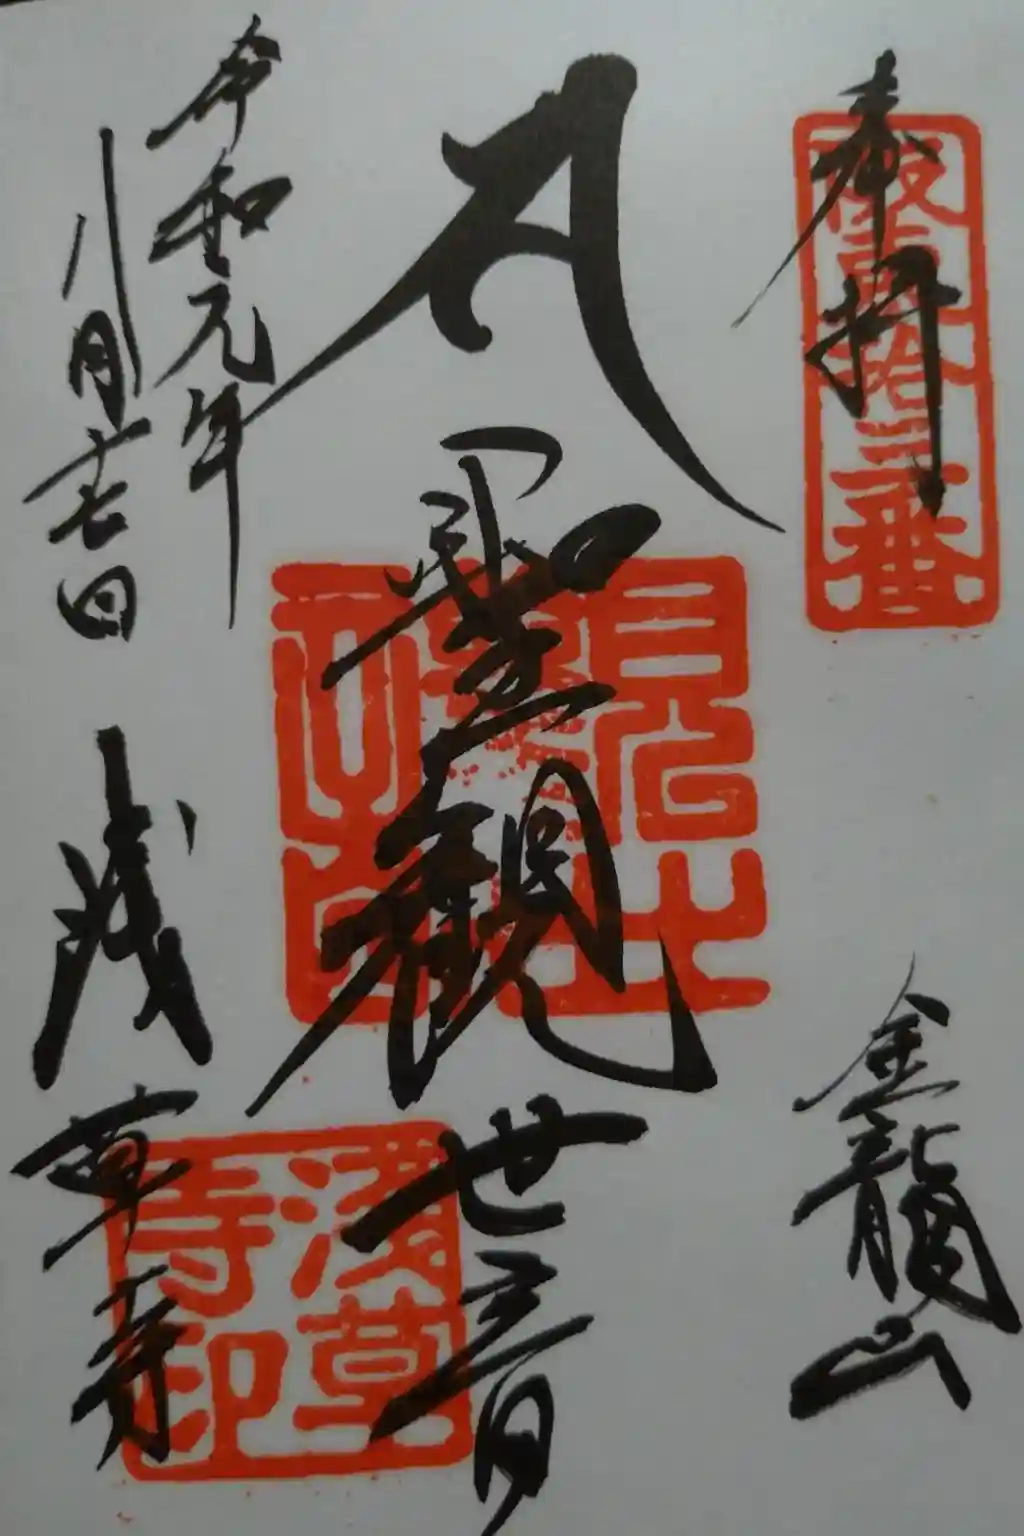 奉拝
坂東拾三番
金龍山
聖観世音
令和元年
八月廿七日
浅草寺
浅草
寺印